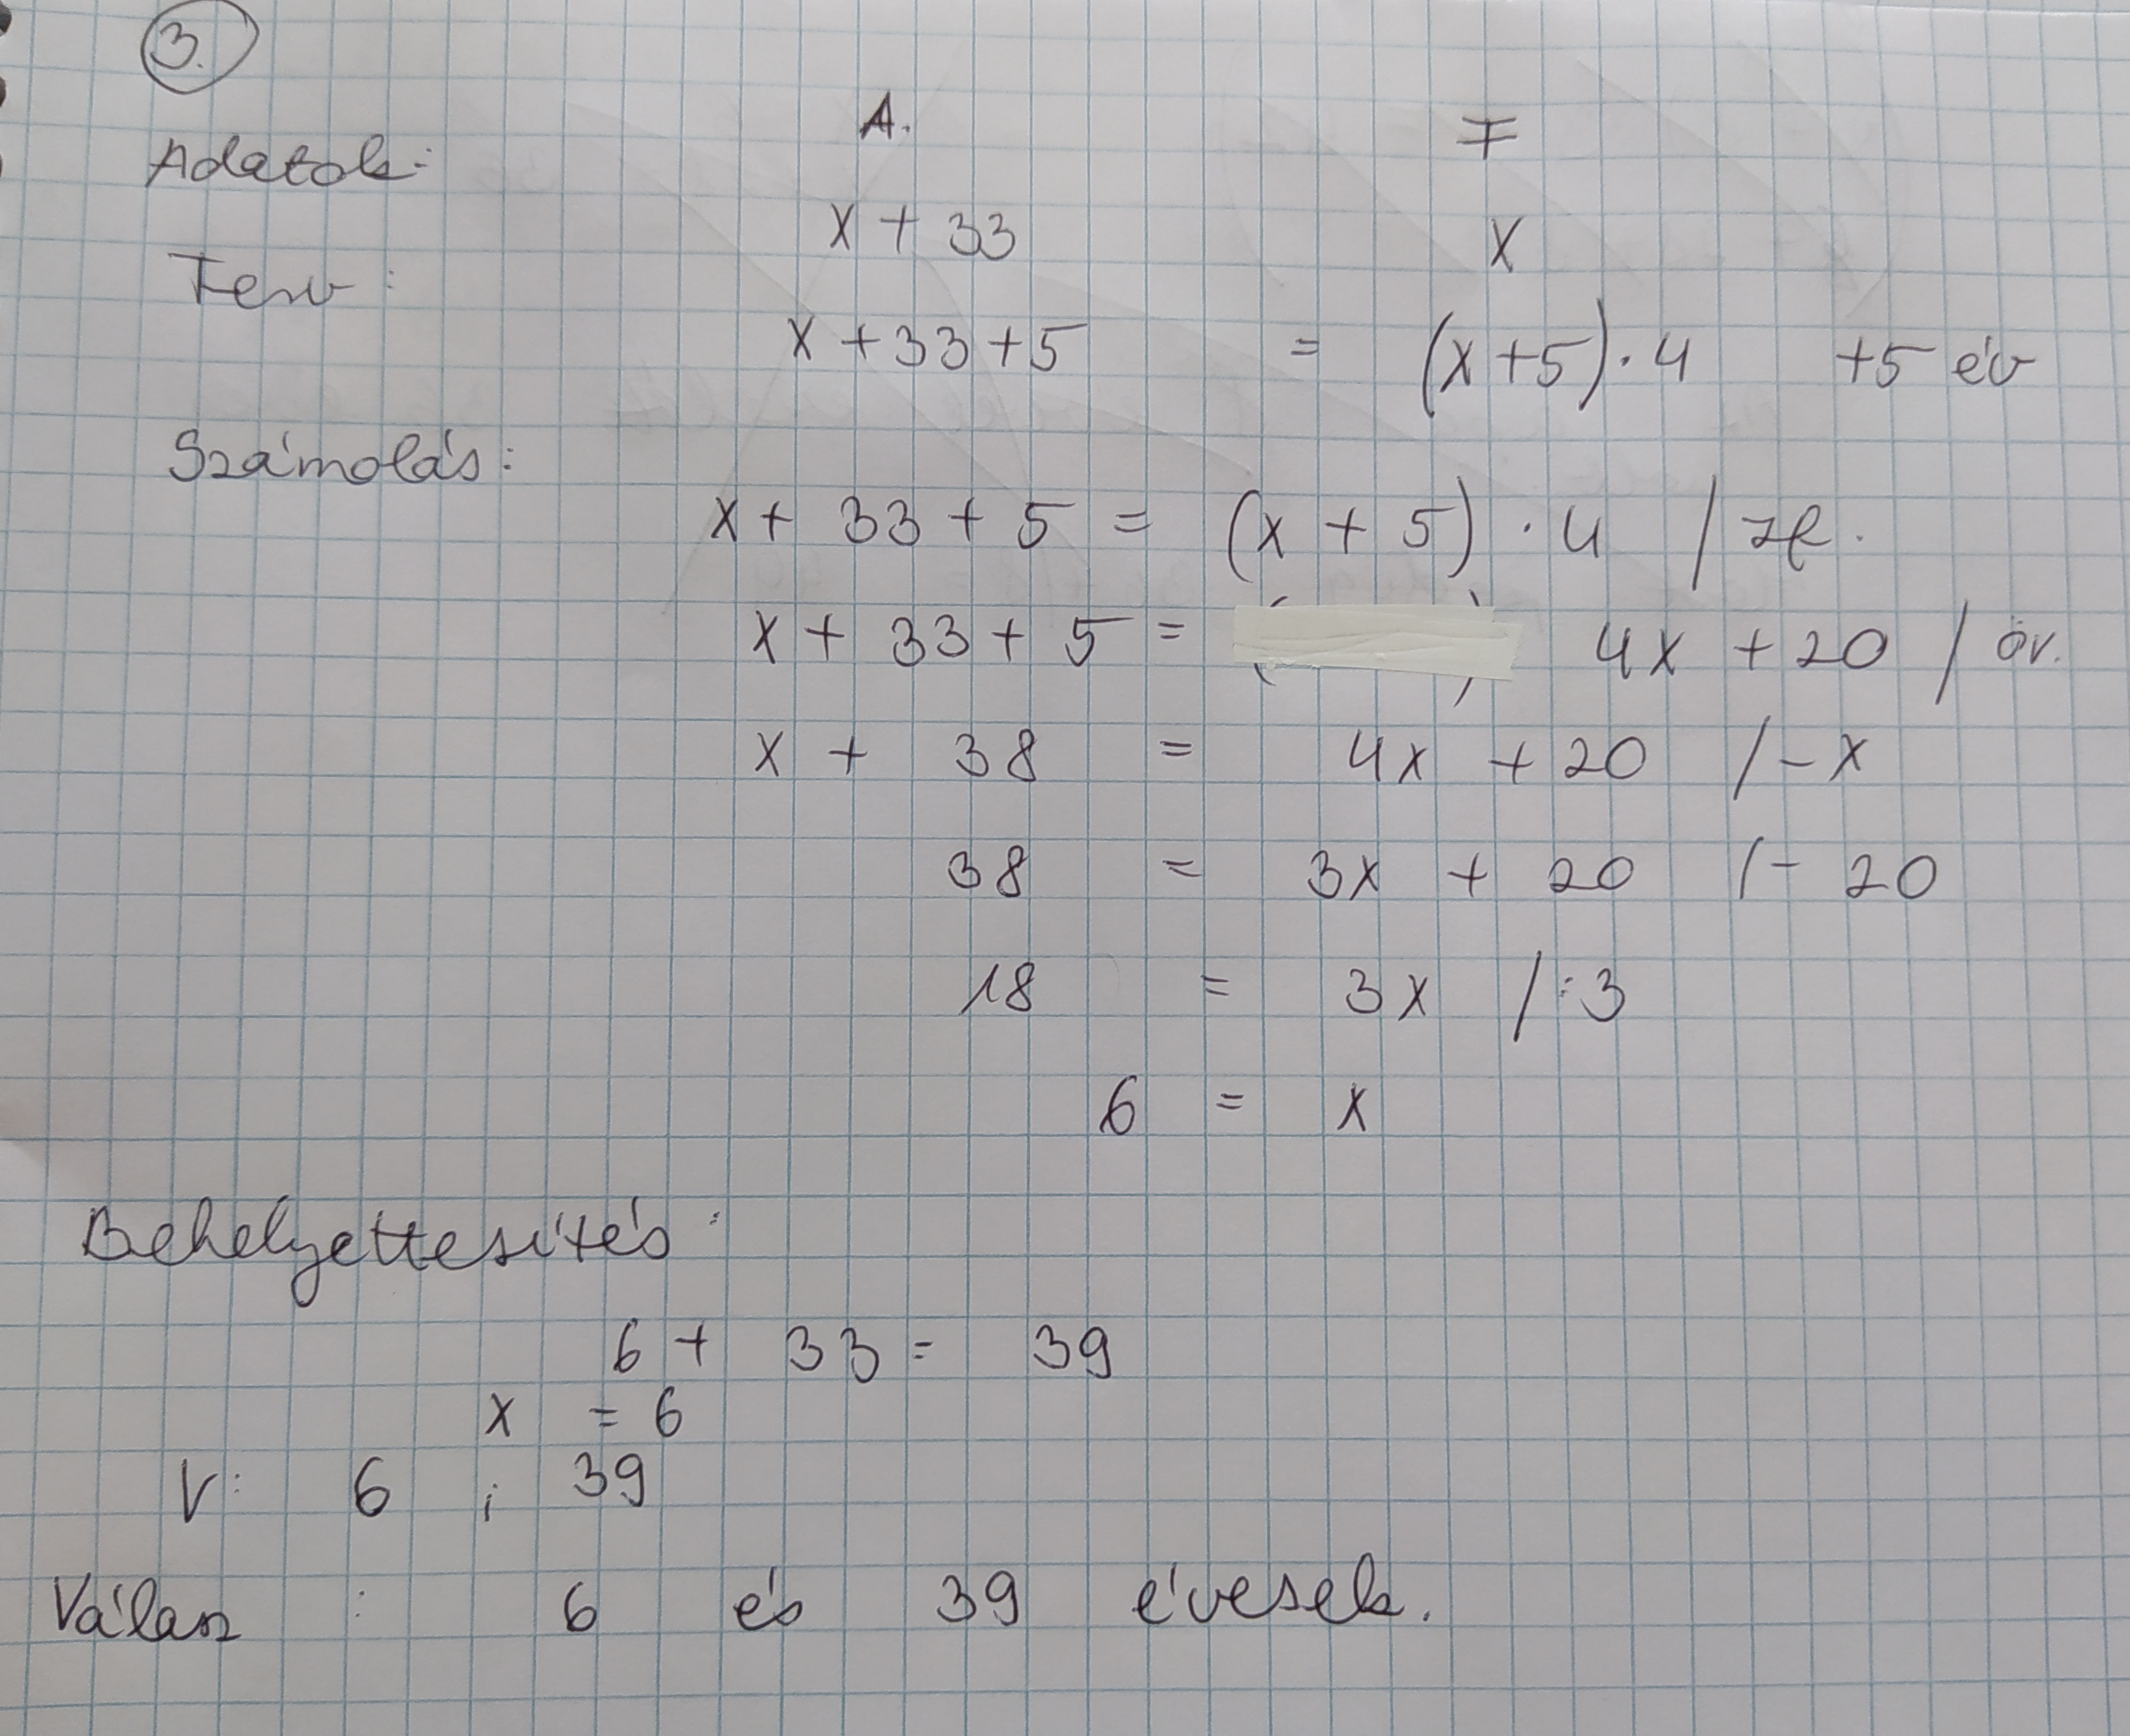 3.
A. F
Adatok:
x + 33 x
Terv:
x + 33 + 5 = (x + 5) · 4 + 5 év
Számolás:
x + 33 + 5 = (x + 5) · 4 / zf.
x + 33 + 5 = ( ) 4x + 20 / öv.
x + 38 = 4x + 20 / - x
38 = 3x + 20 / - 20
18 = 3x / : 3
6 = x
Behelyettesítés:
6 + 33 = 39
x = 6
V: 6 ; 39
Válasz : 6 és 39 évesek.